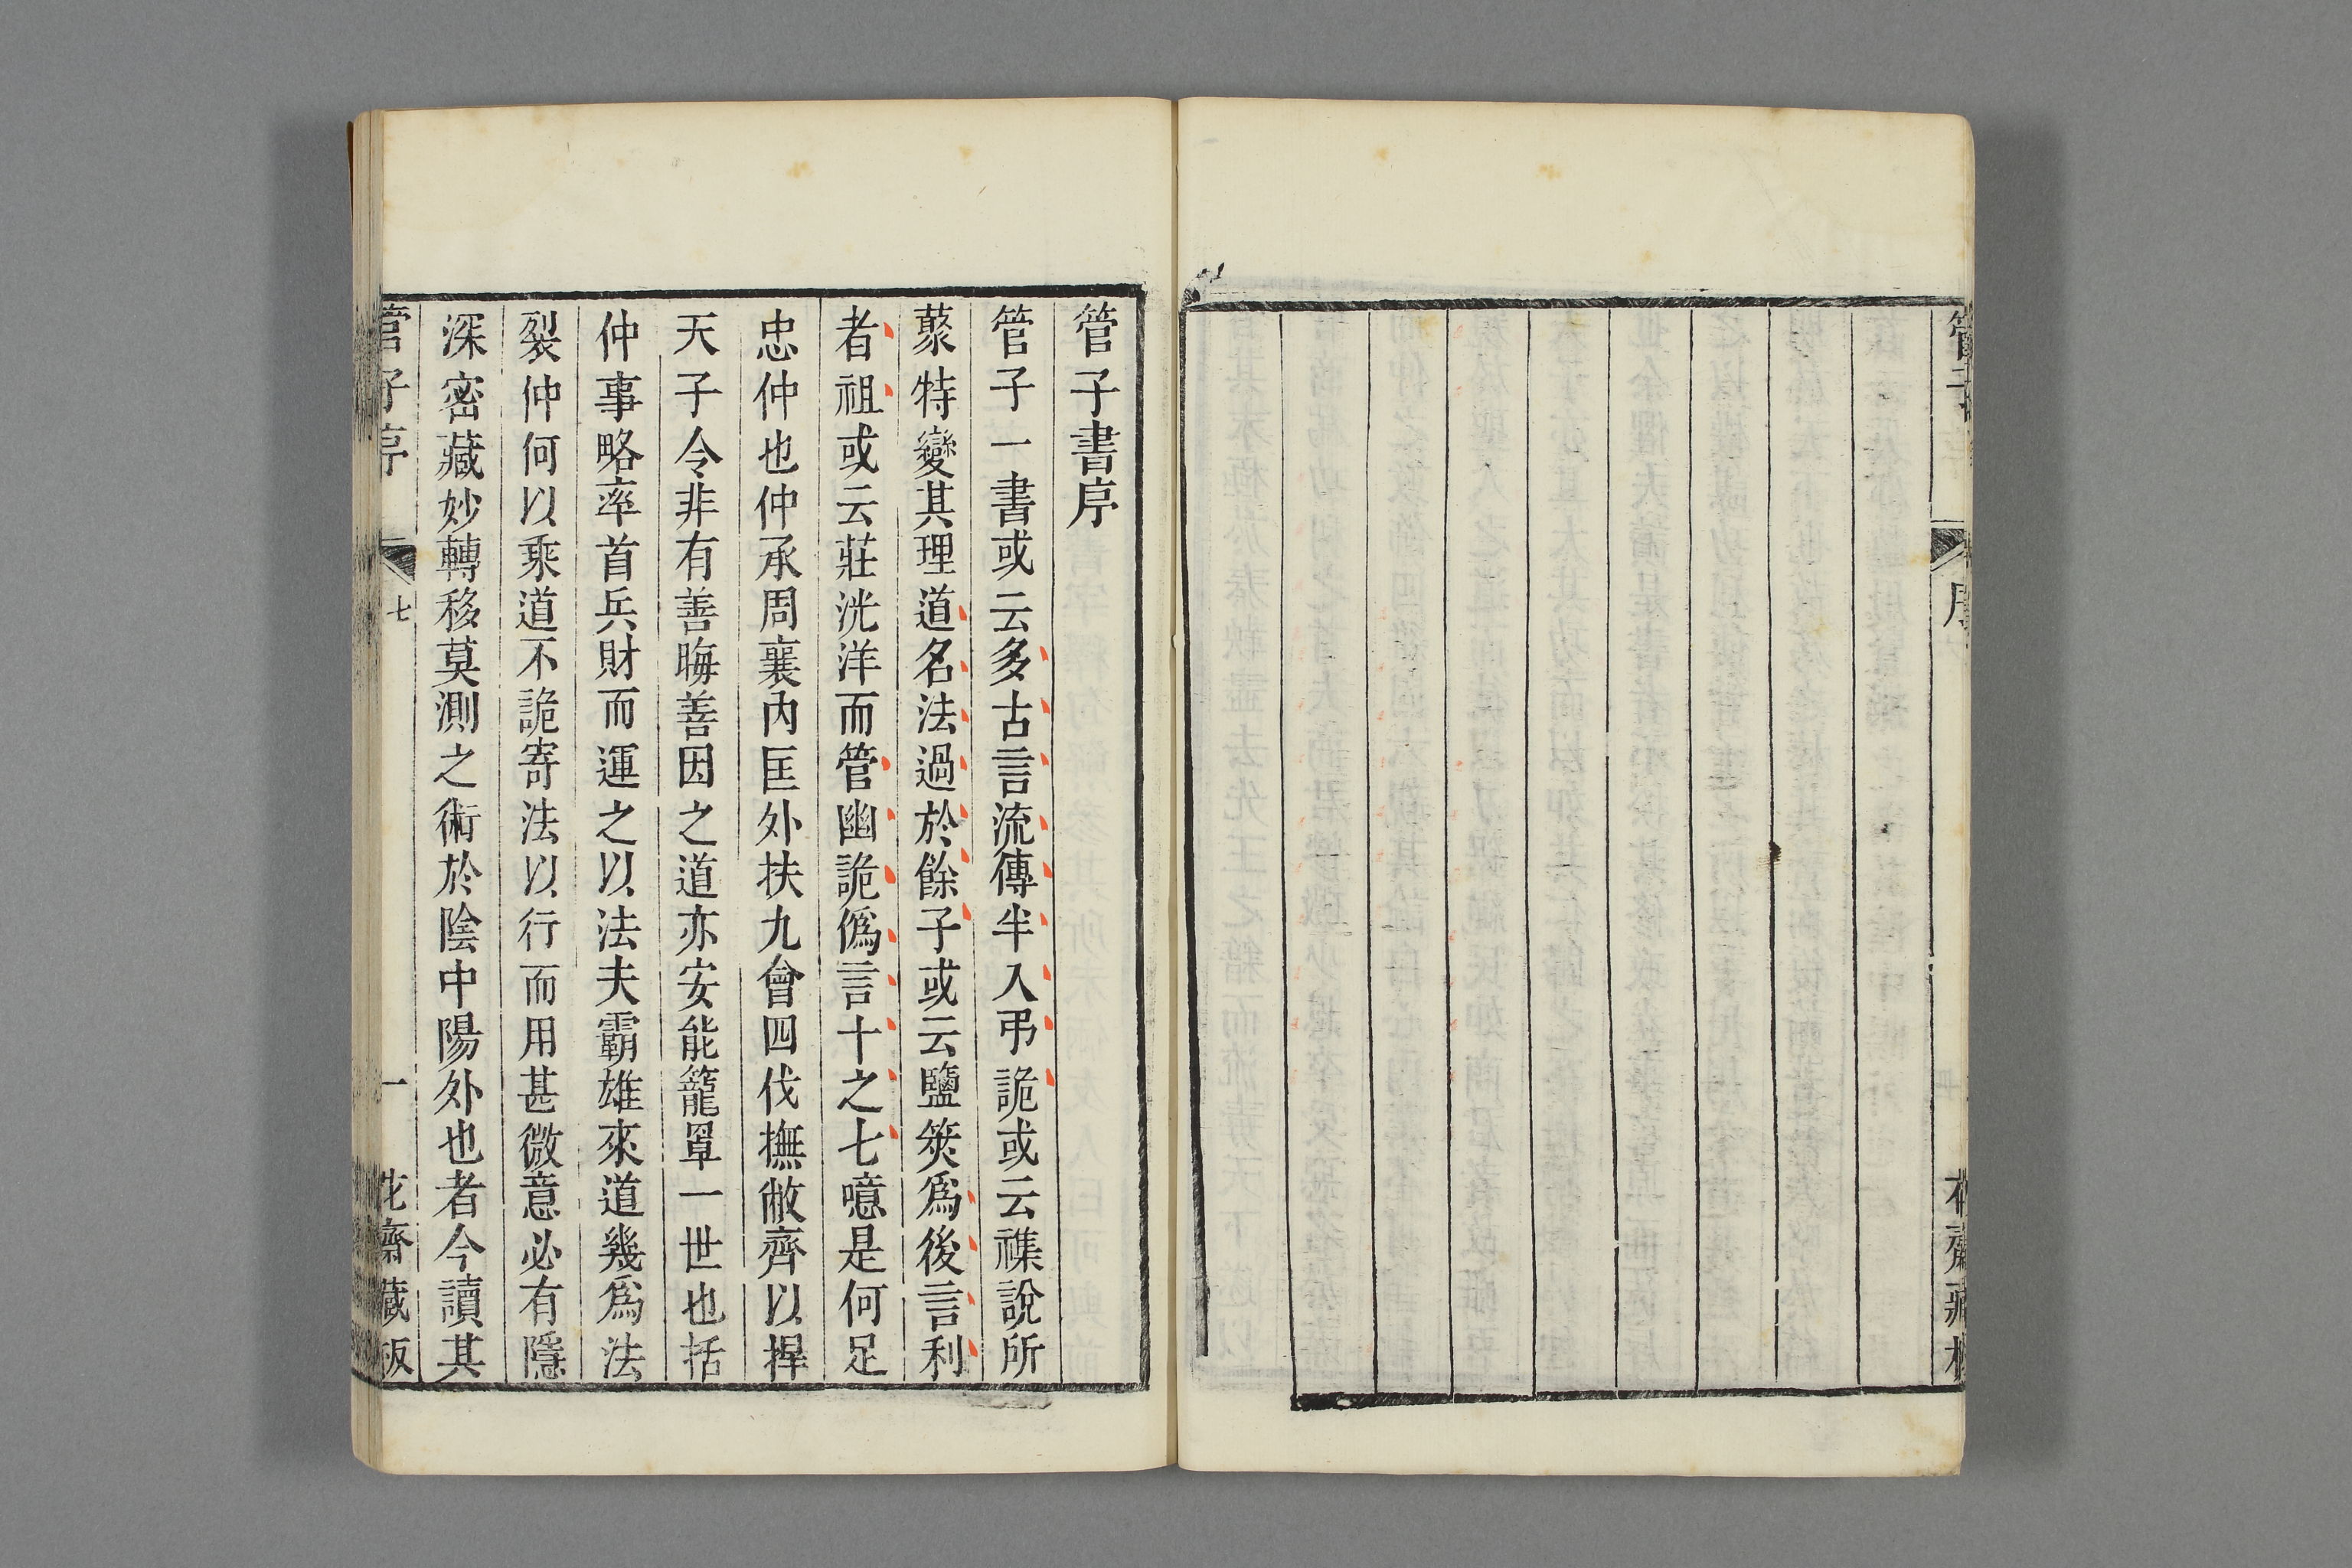 管子書序
管子一書或云多古言流傳半入弔詭或云襍說所
蘂特變其理道名法過於餘子或云鹽筴爲後言利
者祖或云莊洸洋而管幽詭僞言十之七噫是何足
忠仲也仲承周襄內匡外扶九會四伐撫敝齊以捍
天子令非有善晦善因之道亦安能籠罩一世也括
仲事略率首兵財而運之以法夫霸雄來道幾爲法
裂仲何以乘道不詭寄法以行而用甚微意必有隱
深密藏妙轉移莫測之術於陰中陽外也者今讀其
管子序 七 一 花齋藏板